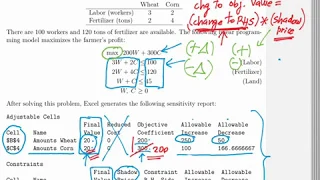 Wheat Corn
Labor (workers) 3 2
Fertilizer (tons) 2 4
chg to obj. value =
(change to RHS) * (shadow
price
There are 100 workers and 120 tons of fertilizer are available. The following linear program-
ming model maximizes the farmer's profit:
max 200W + 300C
3W + 2C ≤ 100 (Labor)
2W + 4C ≤ 120 (Fertilizer)
W ≤ 45 (Land)
W, C ≥ 0
(+Δ) (+)
(-Δ) (-)
After solving this problem, Excel generates the following sensitivity report:
Adjustable Cells
Final Reduced Objective Allowable Allowable
Cell Name Value Cost Coefficient Increase Decrease
$B$4 Amounts Wheat 20 200 250 50
$C$4 Amounts Corn 20 300 100 166.6666667
Constraints
Final Shadow Constraint Allowable Allowable